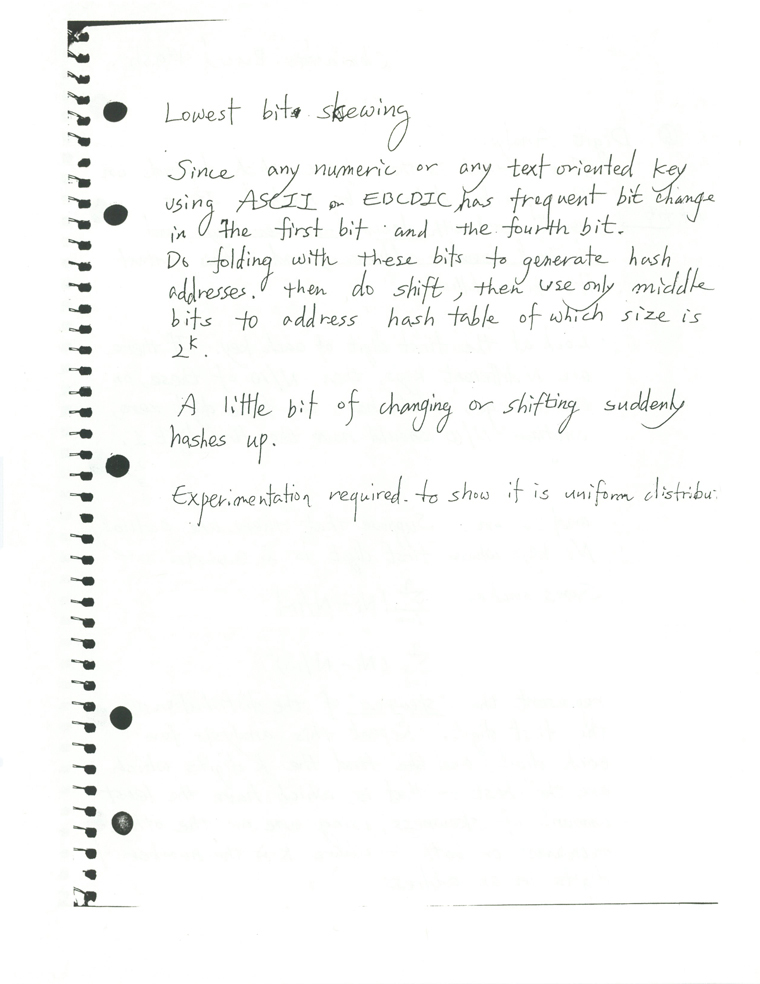 Lowest bit skewing
Since any numeric or any text oriented key
using ASCII or EBCDIC has frequent bit change
in the first bit and the fourth bit.
Do folding with these bits to generate hash
addresses. then do shift, then use only middle
bits to address hash table of which size is
2^k.
A little bit of changing or shifting suddenly
hashes up.
Experimentation required. to show it is uniform distribu